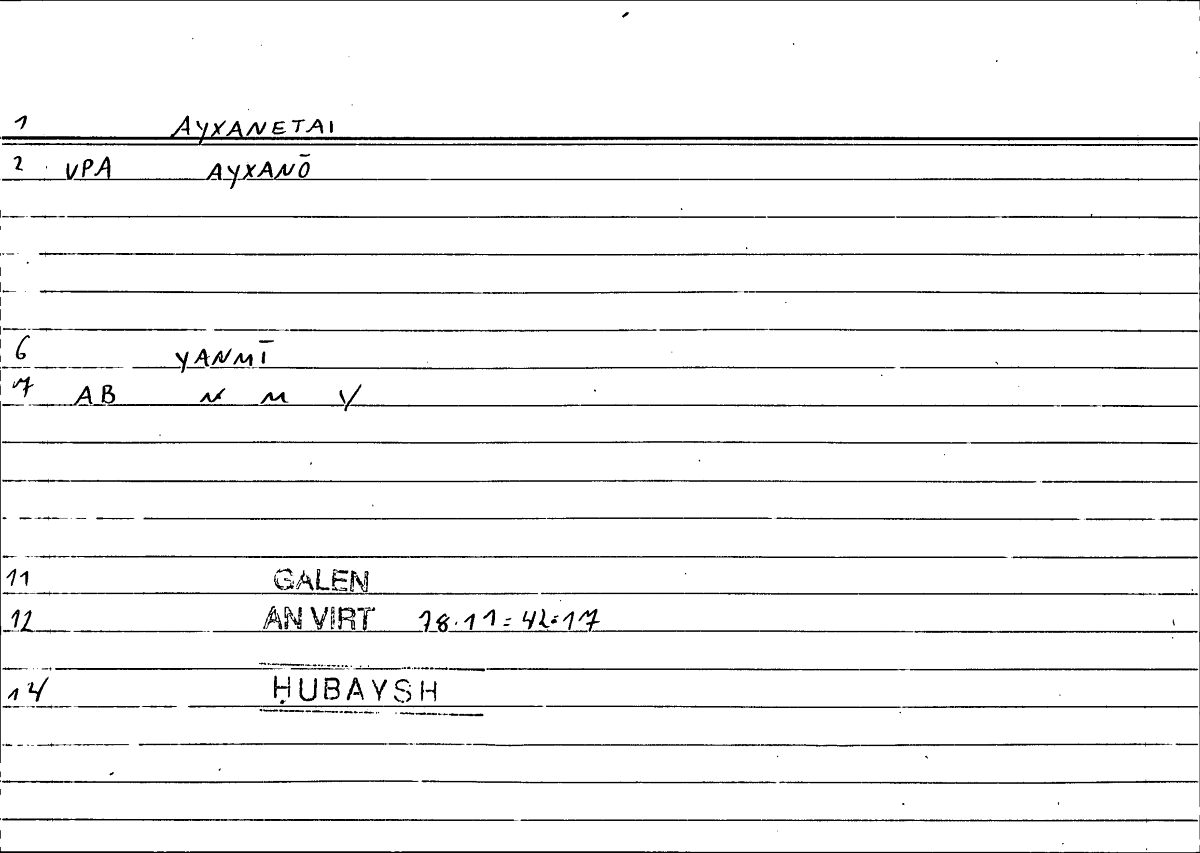 1 AYXANETAI
2 VPA AYXANŌ
6 YANMĪ
7 AB N M Y
11 GALEN
12 AN VIRT 18.11=42=17
14 ḤUBAYSH